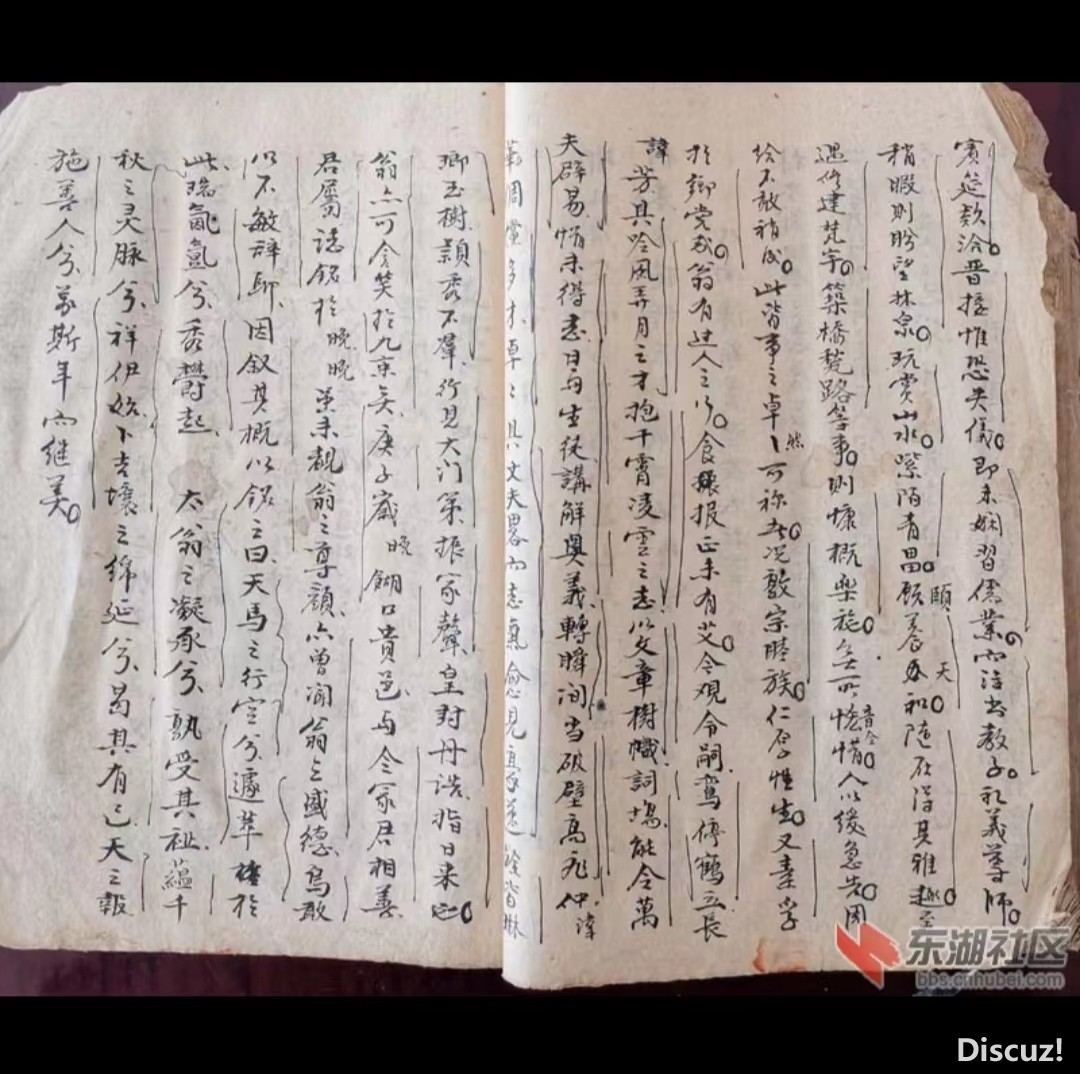 賓筵款洽晋接惟恐失儀即未嫻習儒業而注出教子礼義尊師
稍暇則盼望林泉玩賞山水緊陌青田頤養天和随在得其雅趣至
遇修建梵宇築橋甃路等事則慷概樂施無所怪惜人以緩急告因
給不敢稍後此皆事之卓卓然可称者况敦宗睦族仁厚性生又素孚
於鄉党哉翁有过人之行食報正未有艾今观令嗣鸞停鶴立長
諱芳其吟風弄月之才抱干霄凌雲之志以文章樹幟詞場能令萬
夫辟易惜未得志日与生徒講解奥義轉瞬间当破壁高飛仲諱
周堂多才卓卓其文夫畧而志氣愈見 皆琳
瑯玉樹穎秀不羣行見大门第振家聲皇封丹誥指日来也
翁亦可含笑於九京矣庚子嵗晚餬口貴邑与令冢君相善
君屬誌銘於晚晚業未覩翁之尊顔亦曾闻翁之盛德焉敢
以不敏辞耶因叙其概以銘之曰天馬之行空兮遽萃於
此瑞氤氲兮秀欝起太翁之凝承兮孰受其祉蘊千
秋之灵脉兮祥伊始卜吉壤之绵延兮曷其有已天之報
施善人兮於斯年而继美
东湖社区
bbs.cnhubei.com
Discuz!